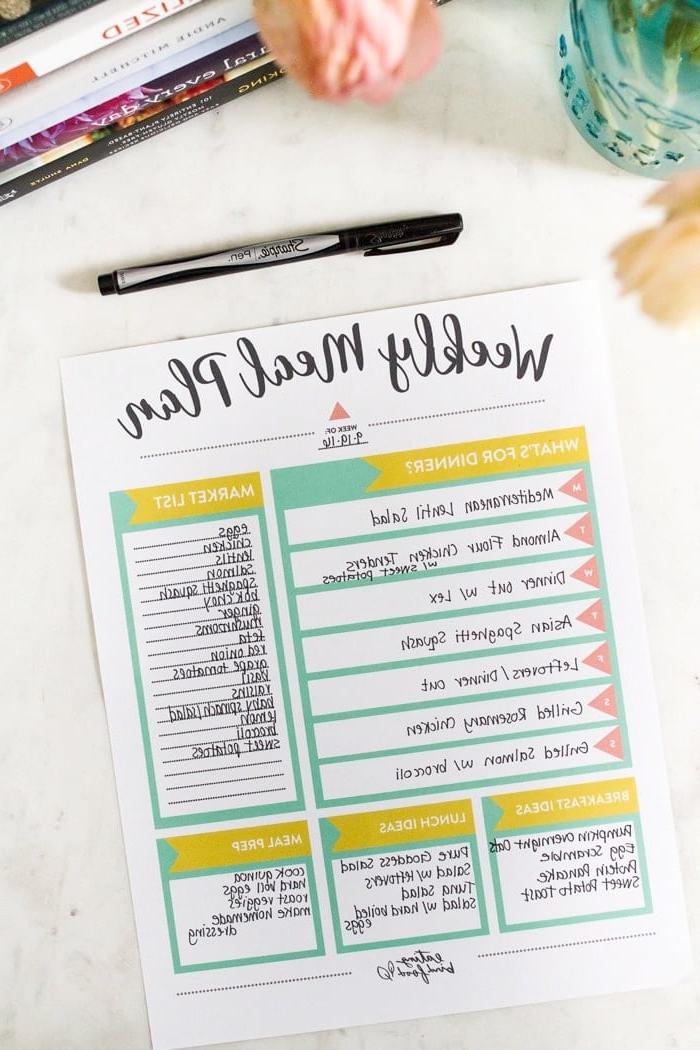 ALIZED
ANDIE MITCHELL
ural every day
COOKING
101 ENTIRELY PLANT-BASED
DANA SHULTZ
Sharpie. Pen.
Weekly Meal Plan
WEEK OF:
9.19.16
WHAT'S FOR DINNER?
M Mediterranean Lentil Salad
T Almond Flour Chicken Tenders
w/ sweet potatoes
W Dinner out w/ Lex
T Asian Spaghetti Squash
F Leftovers/Dinner out
S Grilled Rosemary Chicken
S Grilled Salmon w/ broccoli
MARKET LIST
eggs
chicken
lentils
salmon
spaghetti squash
bok choy
ginger
mushrooms
feta
red onion
grape tomatoes
basil
raisins
baby spinach/salad
lemon
broccoli
sweet potatoes
BREAKFAST IDEAS
Pumpkin Overnight Oats
Egg Scramble
Protein Pancake
Sweet Potato Toast
LUNCH IDEAS
Pure Goddess Salad
Salad w/ leftovers
Tuna Salad
Salad w/ hard boiled
eggs
MEAL PREP
cook quinoa
hard boil eggs
roast veggies
make homemade
dressing
eating
bird food